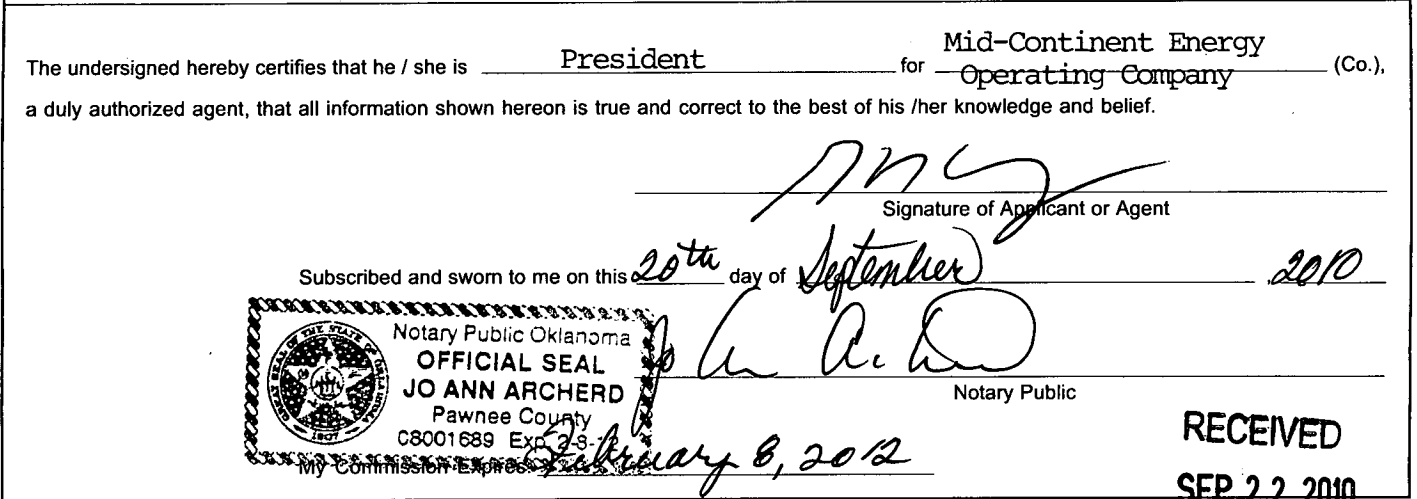 Mid-Continent Energy
The undersigned hereby certifies that he / she is President for Operating Company (Co.),
a duly authorized agent, that all information shown hereon is true and correct to the best of his /her knowledge and belief.
Signature of Applicant or Agent
Subscribed and sworn to me on this 20th day of September ,2010
Notary Public Oklahoma
OFFICIAL SEAL
JO ANN ARCHERD
Notary Public
Pawnee County
C8001689 Exp. 2-8-
My Commission Expires February 8, 2012
RECEIVED
SEP 22 2010